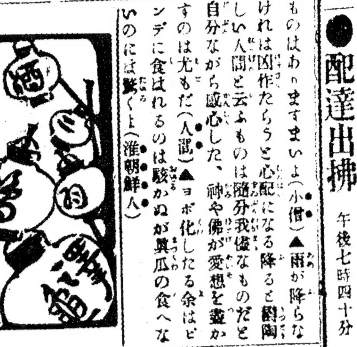 ●配達出拂 午後七時四十分
ものはありますまいよ(小僧)▲雨が降らな
ければ凶作だらうと心配になる降ると鬱陶
しい人間と云ふものは隨分我儘なものだと
自分ながら感心した、神や佛が愛想を盡か
すのは尤もだ(人謂)▲ヨボ化したる余はピ
ンデに食はれるのは駭かぬが眞瓜の食へな
いのには驚くよ(準朝鮮人)
酒